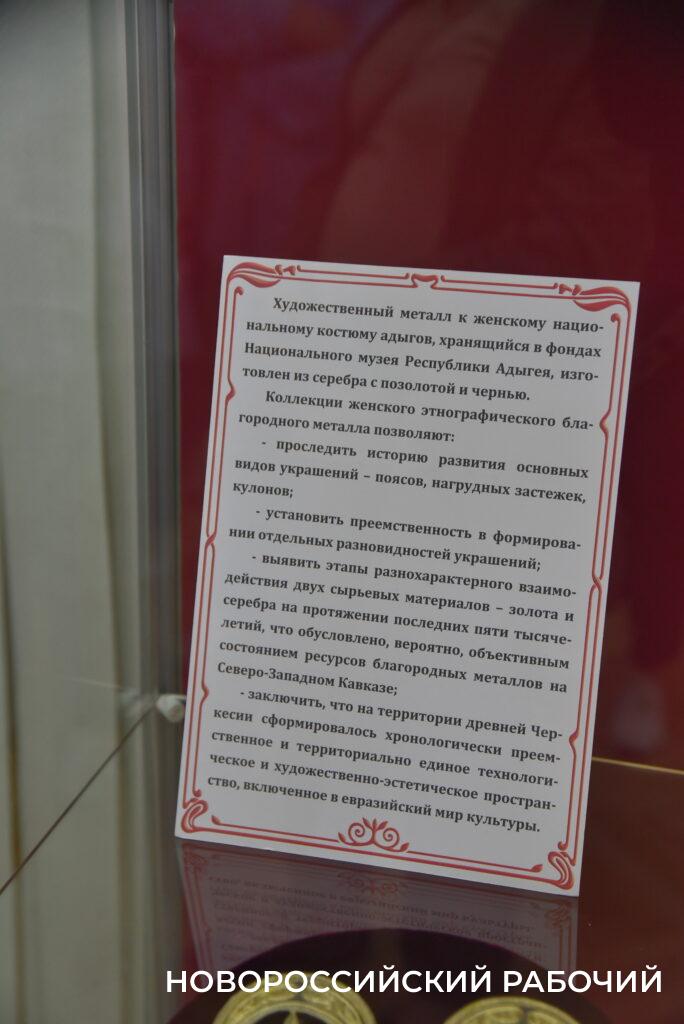 Художественный металл к женскому нацио-
нальному костюму адыгов, хранящийся в фондах
Национального музея Республики Адыгея, изго-
товлен из серебра с позолотой и чернью.
Коллекции женского этнографического бла-
городного металла позволяют:
- проследить историю развития основных
видов украшений – поясов, нагрудных застежек,
кулонов;
- установить преемственность в формирова-
нии отдельных разновидностей украшений;
- выявить этапы разнохарактерного взаимо-
действия двух сырьевых материалов – золота и
серебра на протяжении последних пяти тысяче-
летий, что обусловлено, вероятно, объективным
состоянием ресурсов благородных металлов на
Северо-Западном Кавказе;
- заключить, что на территории древней Чер-
кесии сформировалось хронологически преем-
ственное и территориально единое технологи-
ческое и художественно-эстетическое простран-
ство, включенное в евразийский мир культуры.
НОВОРОССИЙСКИЙ РАБОЧИЙ